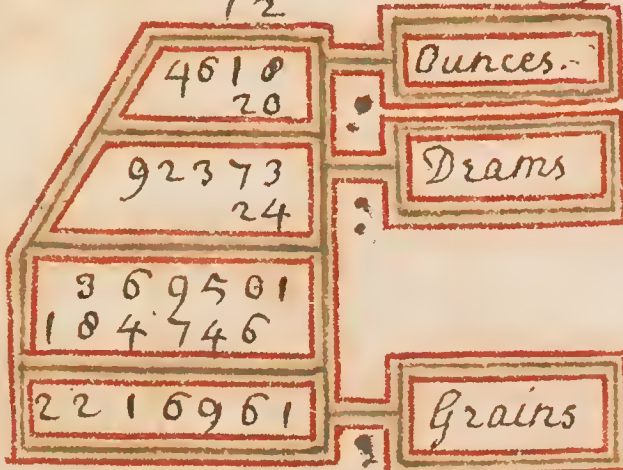 12
4618 Ounces.
20
92373 Drams
24
369501
184746
2216961 Grains